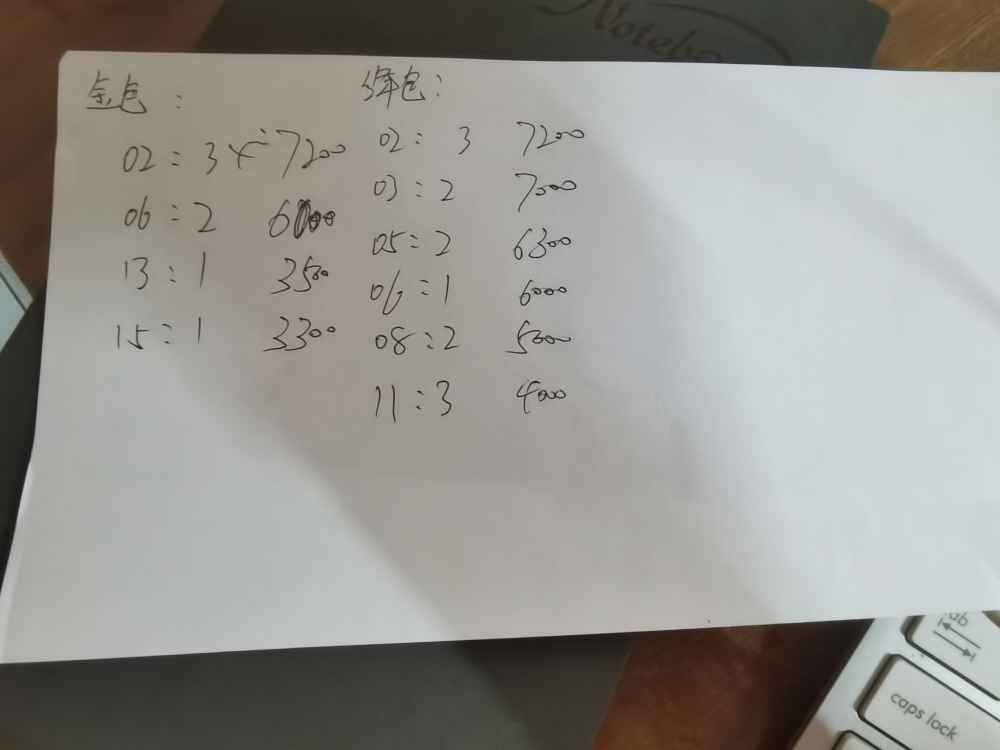 金包：
02：3个 7200
06：2 6000
13：1 3500
15：1 3300
绿包：
02：3 7200
03：2 7000
05：2 6300
06：1 6000
08：2 5000
11：3 4000
Notebo
ab
caps lock